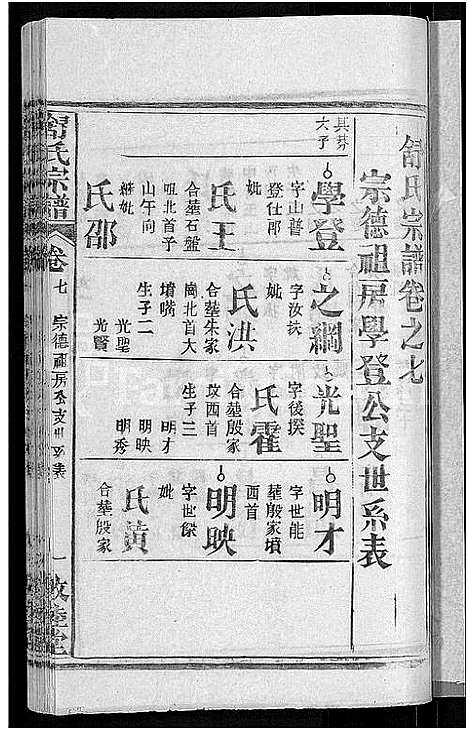 舒氏宗譜卷之七
宗德祖房學登公支世系表
其芬
六子
學登
字山普
登仕郎
妣
王氏
合塟石盤
咀北首子
山午向
繼妣
邵氏
之綱
字汝扶
妣
洪氏
合塟朱家
崗北首大
墳嘴
生子二
光聖
光賢
光聖
字後撲
霍氏
合塟殷家
墳酉首
生子三
明才
明映
明秀
明才
字世能
塟殷家墳
酉首
明映
字世傑
妣
黃氏
合塟殷家
舒氏宗譜
卷七
宗德祖房公支世系表
一
敦睦堂